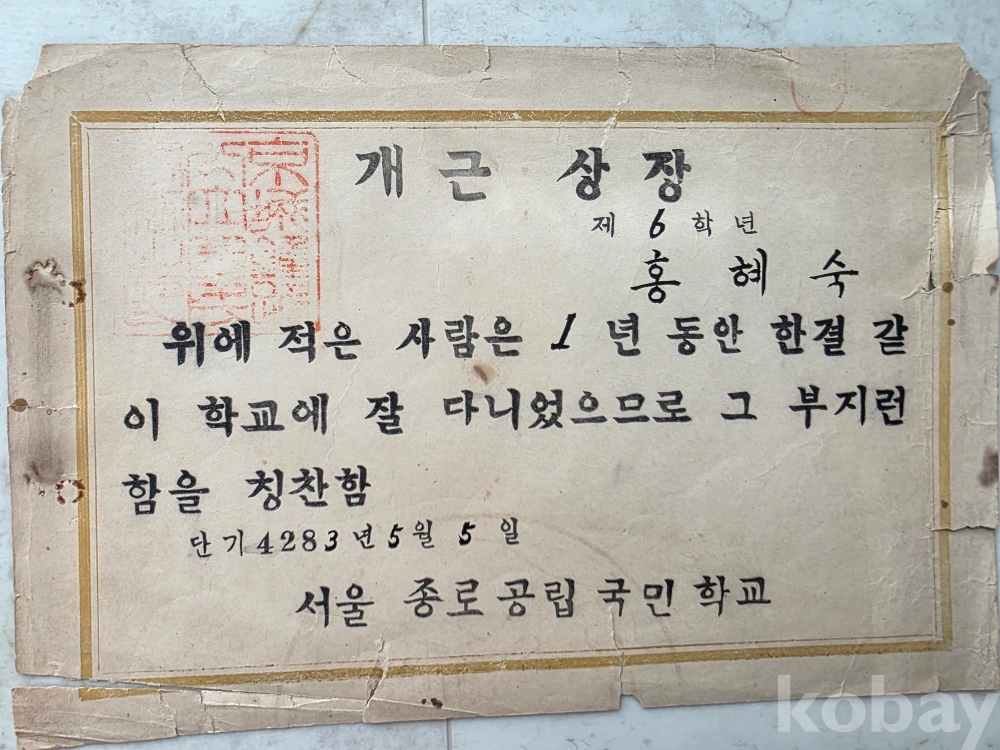 개근 상장
제 6 학년
홍 혜 숙
위에 적은 사람은 1 년 동안 한결 같
이 학교에 잘 다니었으므로 그 부지런
함을 칭찬함
단기 4283년 5월 5일
서울 종로공립국민학교
kobay